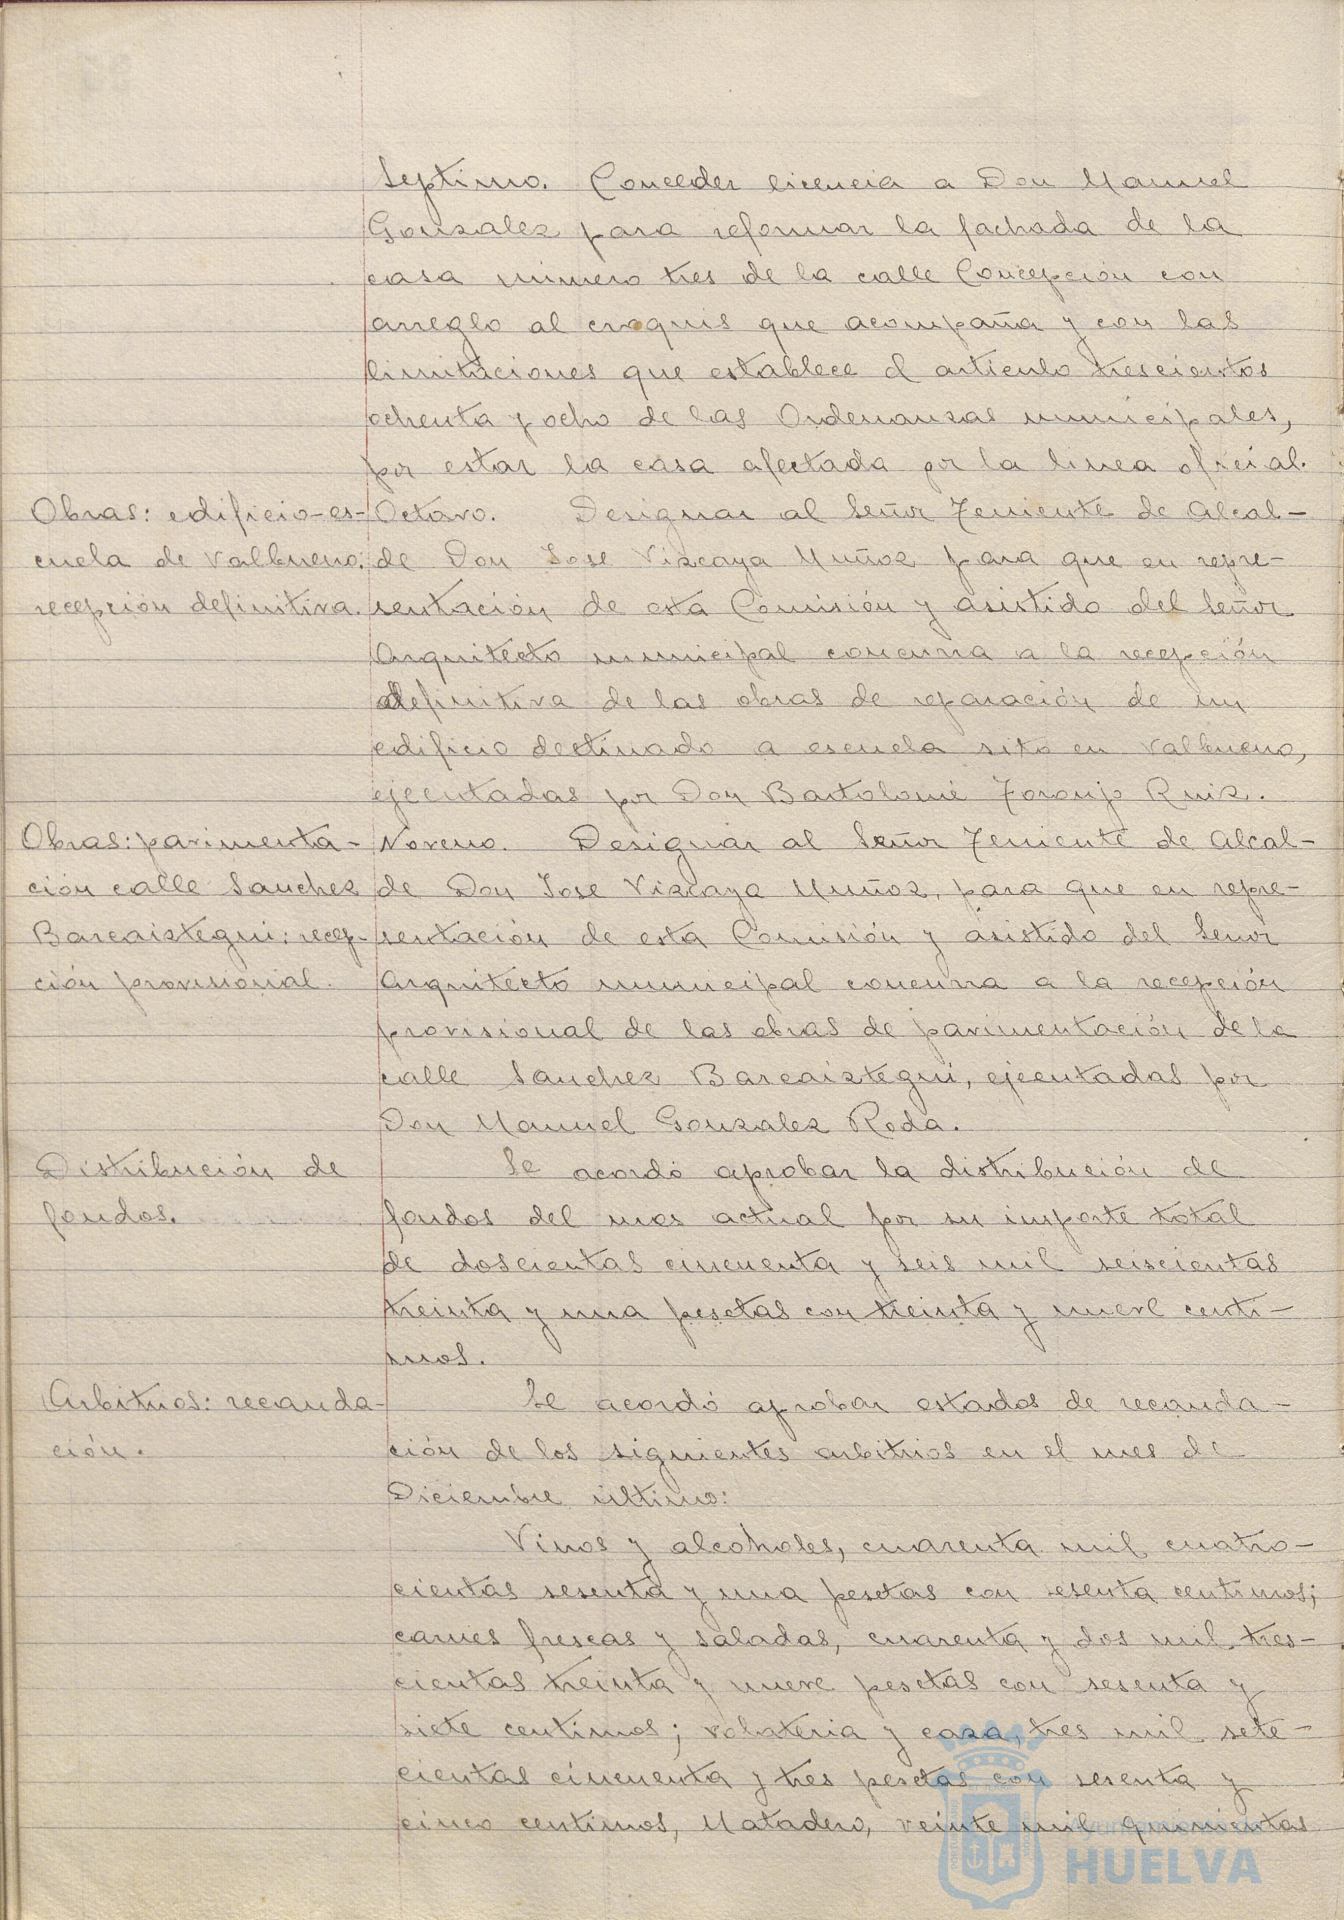 Septimo. Conceder licencia a Don Manuel
Gonzalez para reformar la fachada de la
casa número tres de la calle Concepción con
arreglo al croquis que acompaña y con las
limitaciones que establece el articulo trescientos
ochenta y ocho de las Ordenanzas municipales,
por estar la casa afectada por la linea oficial.
Obras: edificio-es-
cuela de Valbueno:
recepción definitiva.
Octavo. Designar al Señor Teniente de Alcal-
de Don Jose Vizcaya Muñoz para que en repre-
sentación de esta Comisión y asistido del Señor
Arquitecto municipal concurra a la recepción
definitiva de las obras de reparación de un
edificio destinado a escuela sito en Valbueno,
ejecutadas por Don Bartolomé Toronjo Ruiz.
Obras: pavimenta-
ción calle Sanchez
Barcaiztegui: recep-
ción provisional.
Noveno. Designar al Señor Teniente de Alcal-
de Don Jose Vizcaya Muñoz, para que en repre-
sentación de esta Comisión y asistido del Señor
Arquitecto municipal concurra a la recepción
provisional de las obras de pavimentación de la
calle Sanchez Barcaiztegui, ejecutadas por
Don Manuel Gonzalez Roda.
Distribución de
fondos.
Se acordó aprobar la distribución de
fondos del mes actual por su importe total
de doscientas cincuenta y seis mil seiscientas
treinta y una pesetas con treinta y nueve centi-
mos.
Arbitrios: recauda-
ción.
Se acordó aprobar estados de recauda-
ción de los siguientes arbitrios en el mes de
Diciembre último:
Vinos y alcoholes, cuarenta mil cuatro-
cientas sesenta y una pesetas con sesenta centimos;
carnes frescas y saladas, cuarenta y dos mil tres-
cientas treinta y nueve pesetas con sesenta y
siete centimos; volateria y caza, tres mil sete-
cientas cincuenta y tres pesetas con sesenta y
cinco centimos, Matadero, veinte mil quinientas
Ayuntamiento de
HUELVA